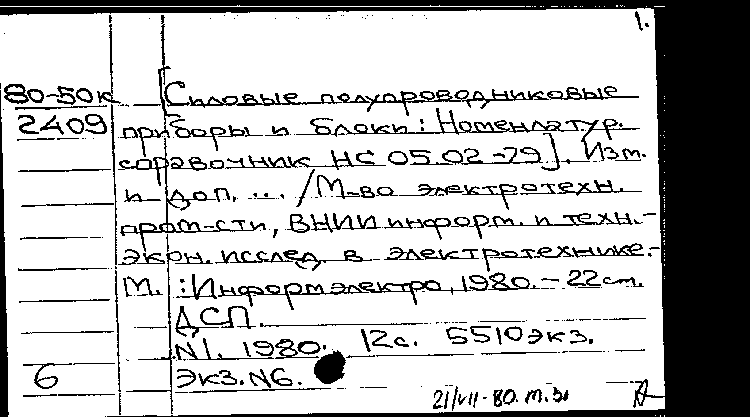 1.
80-50к [Силовые полупроводниковые
2409 приборы и блоки: Номенлатур.
справочник НС 05.02-79]. Изм.
и доп. ... /М-во электротехн.
пром-сти, ВНИИ информ. и техн.-
экон. исслед. в электротехнике.-
М.: Информэлектро, 1980.- 22см.
ДСП.
N1. 1980. 12с. 5510экз.
6 Экз. N6.
21/VII-80. т.